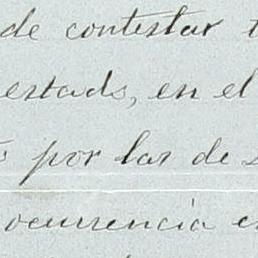 de contestar
estads, en el
por las de
ocurrencia